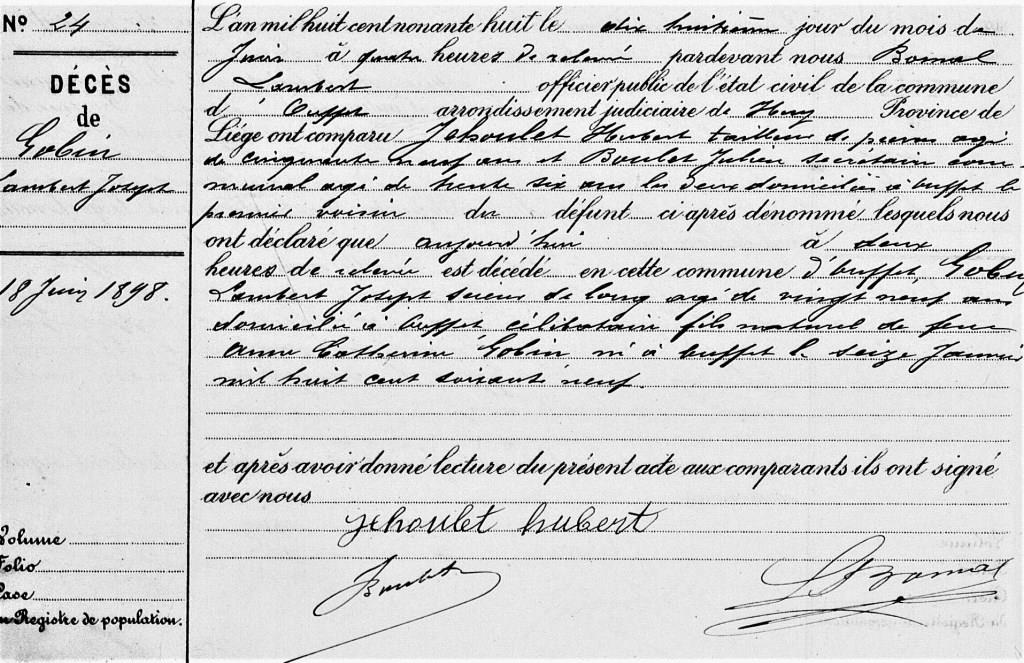 N° 24
DÉCÈS
de
Gobin
Lambert Joseph
18 Juin 1898.
Volume
Folio
Case
du Registre de population.
L'an mil huit cent nonante huit le dix huitième jour du mois de
Juin à quatre heures de relevé pardevant nous Bomal
Lambert officier public de l'état civil de la commune
d' Ouffet arrondissement judiciaire de Huy Province de
Liége ont comparu Jehoulet Hubert tailleur de pierres agé
de cinquante neuf ans et Boulet Julien secretaire com-
munal agé de trente six ans les deux domiciliés à Ouffet le
premier voisin du défunt ci après dénommé lesquels nous
ont déclaré que aujourd'hui à deux
heures de relevée est décédé en cette commune d'Ouffet, Gobin
Lambert Joseph scieur de long agé de vingt neuf ans
domicilié à Ouffet célibatain fils naturel de feue
Anne Catherine Gobin né à Ouffet le seize Janvier
mil huit cent soixante neuf.
et après avoir donné lecture du présent acte aux comparants ils ont signé
avec nous
Jehoulet hubert
JBoulet
LBomal